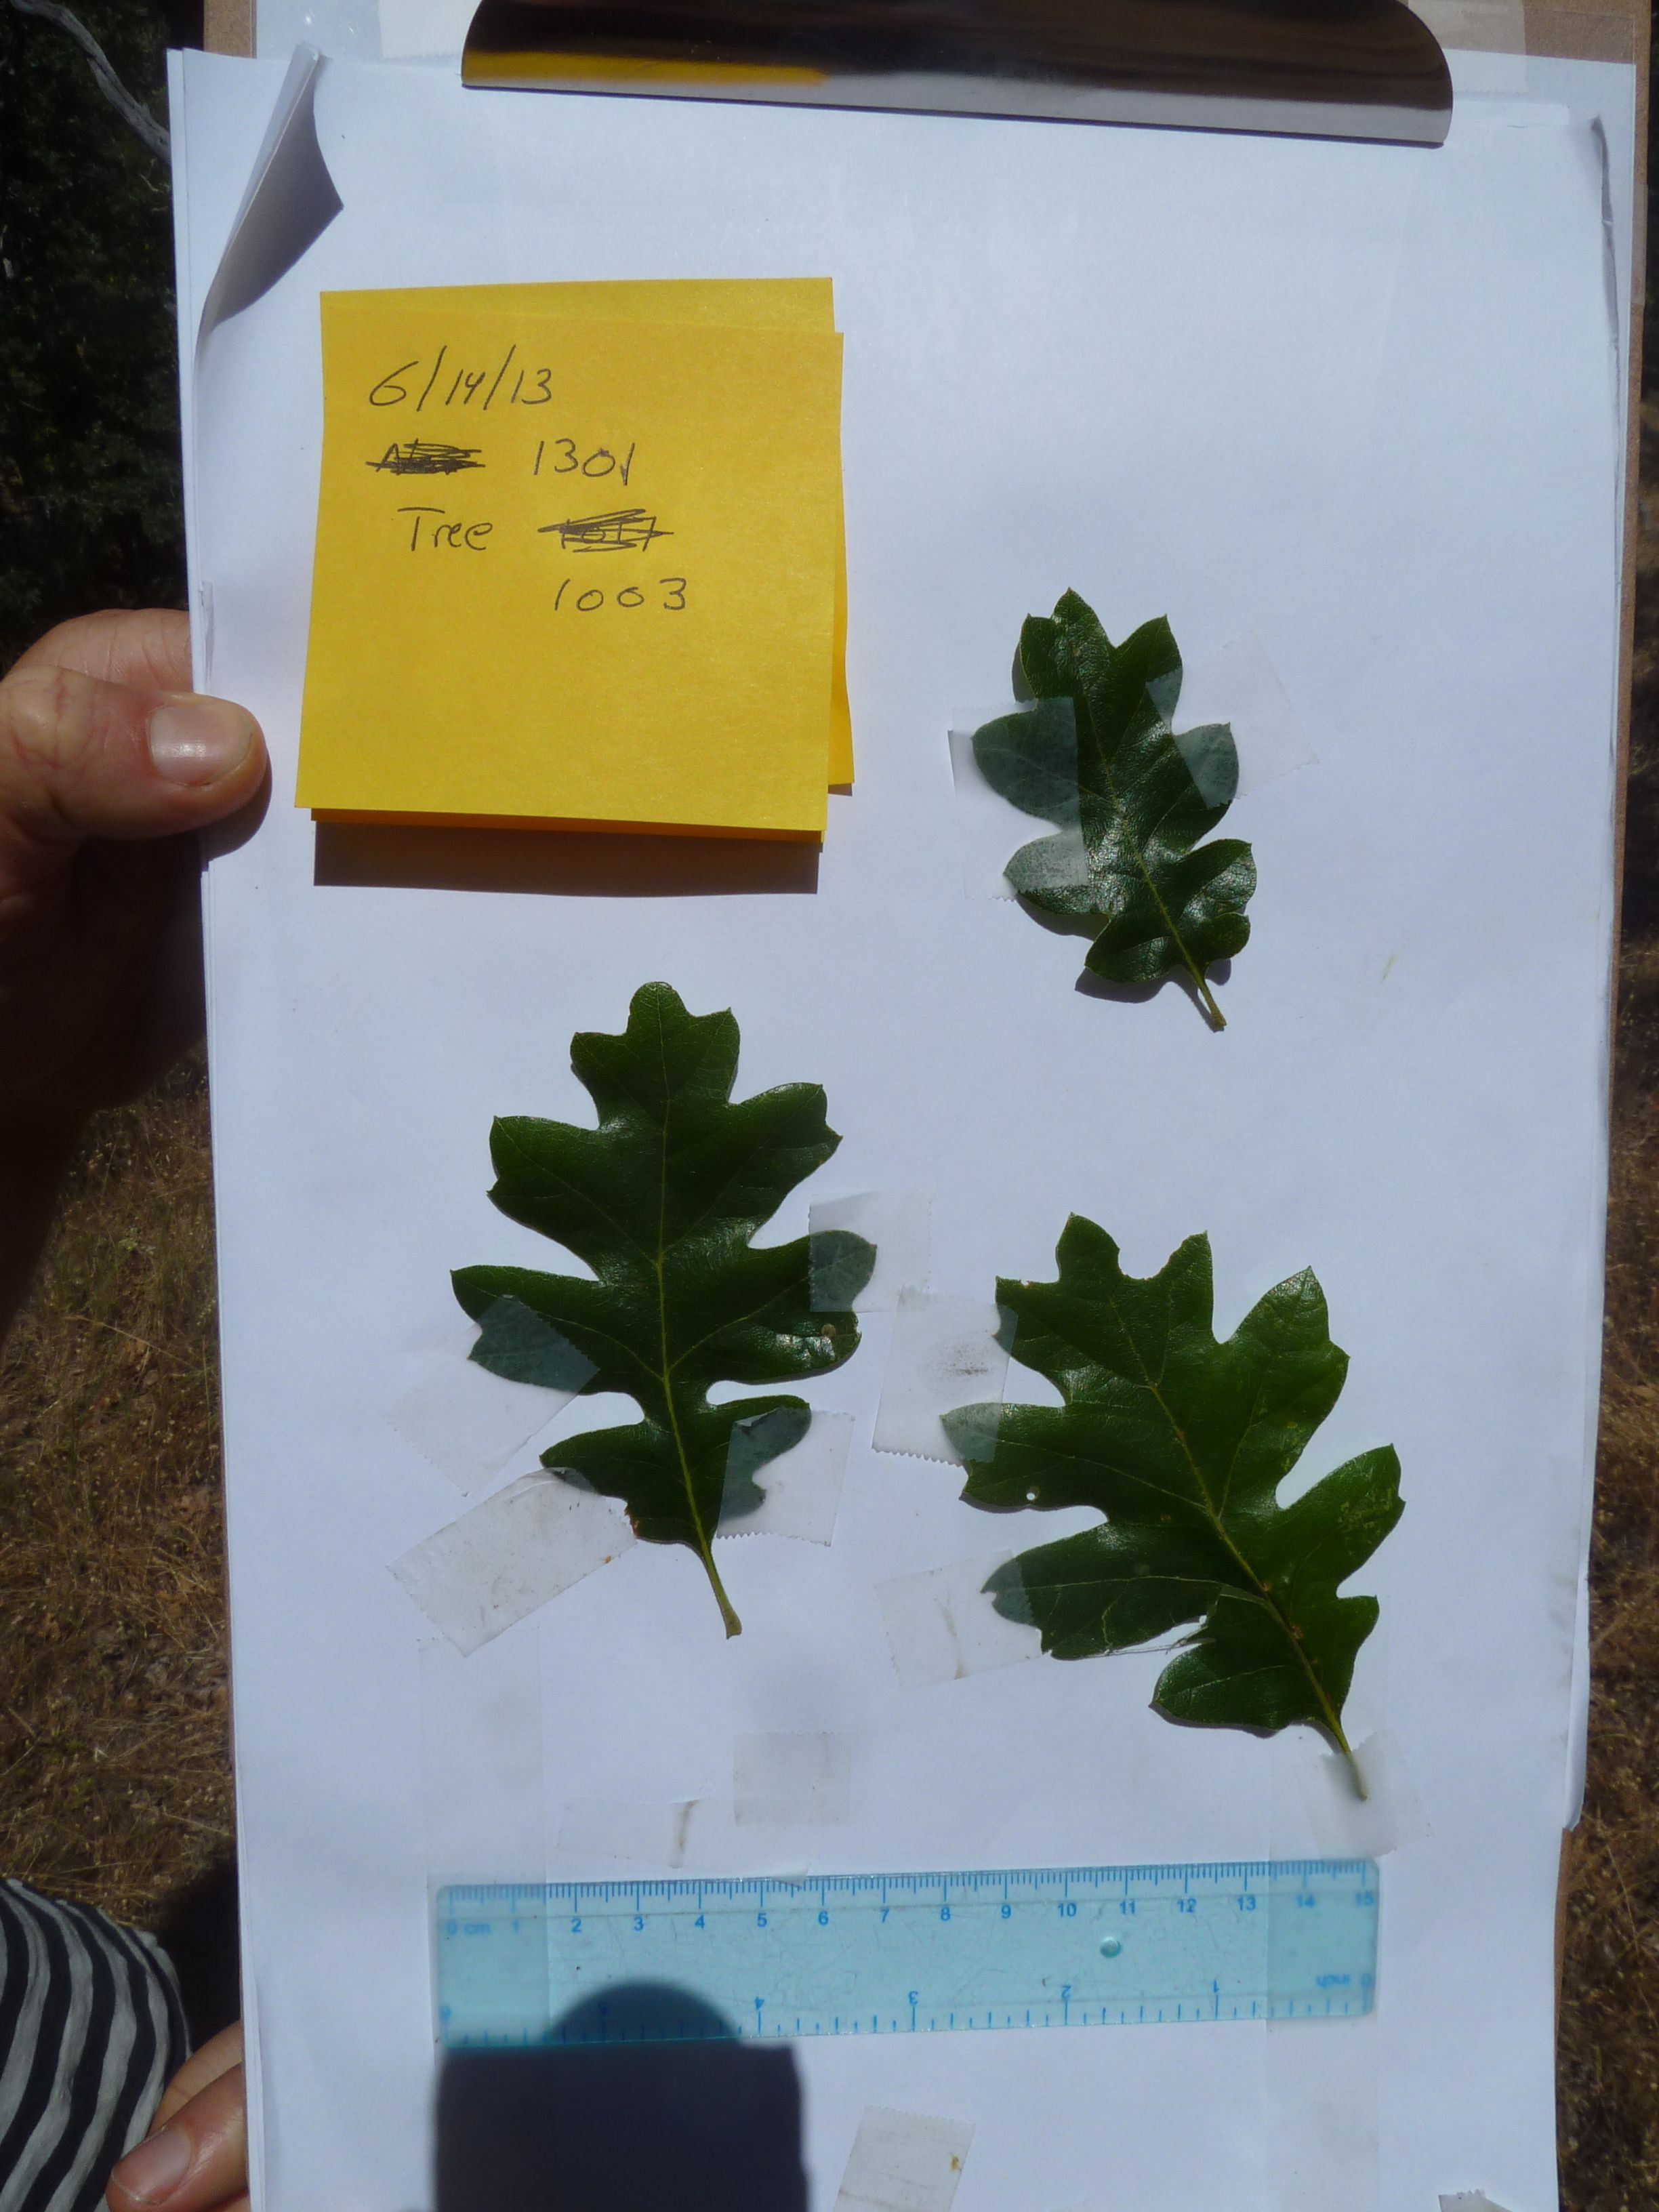 6/14/13
1301
Tree
1003
0 cm 1 2 3 4 5 6 7 8 9 10 11 12 13 14 15
6 5 4 3 2 1 0 inch